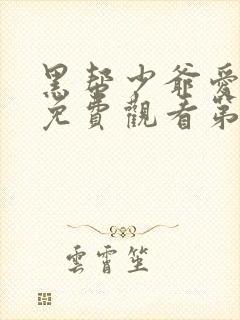 黑幫少爺愛
免費觀看第
雲霄笙